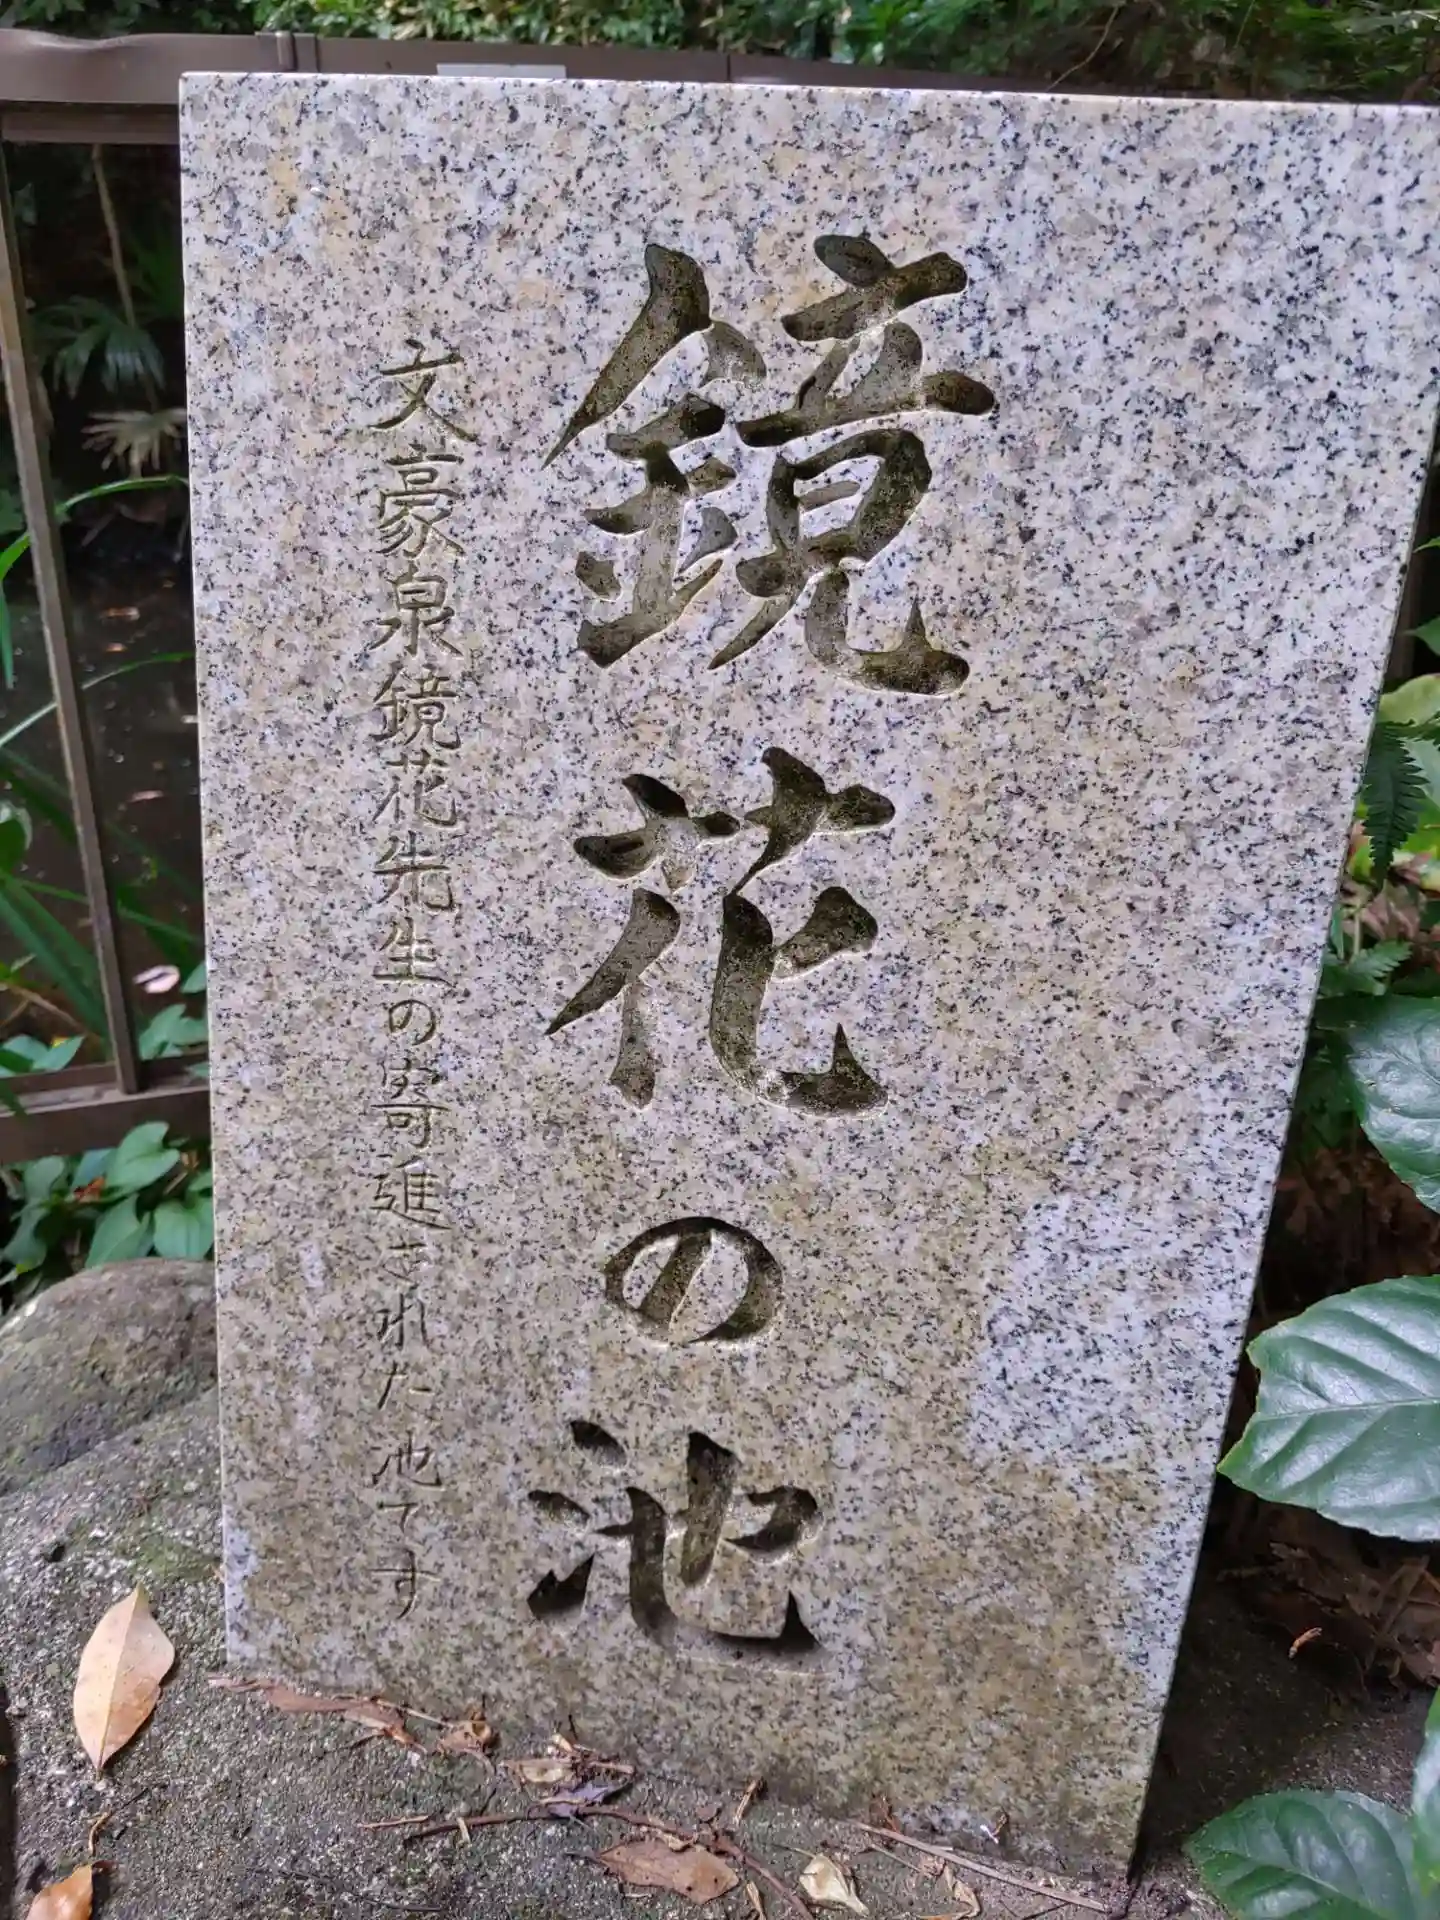 鏡花の池
文豪泉鏡花先生の寄進された池です